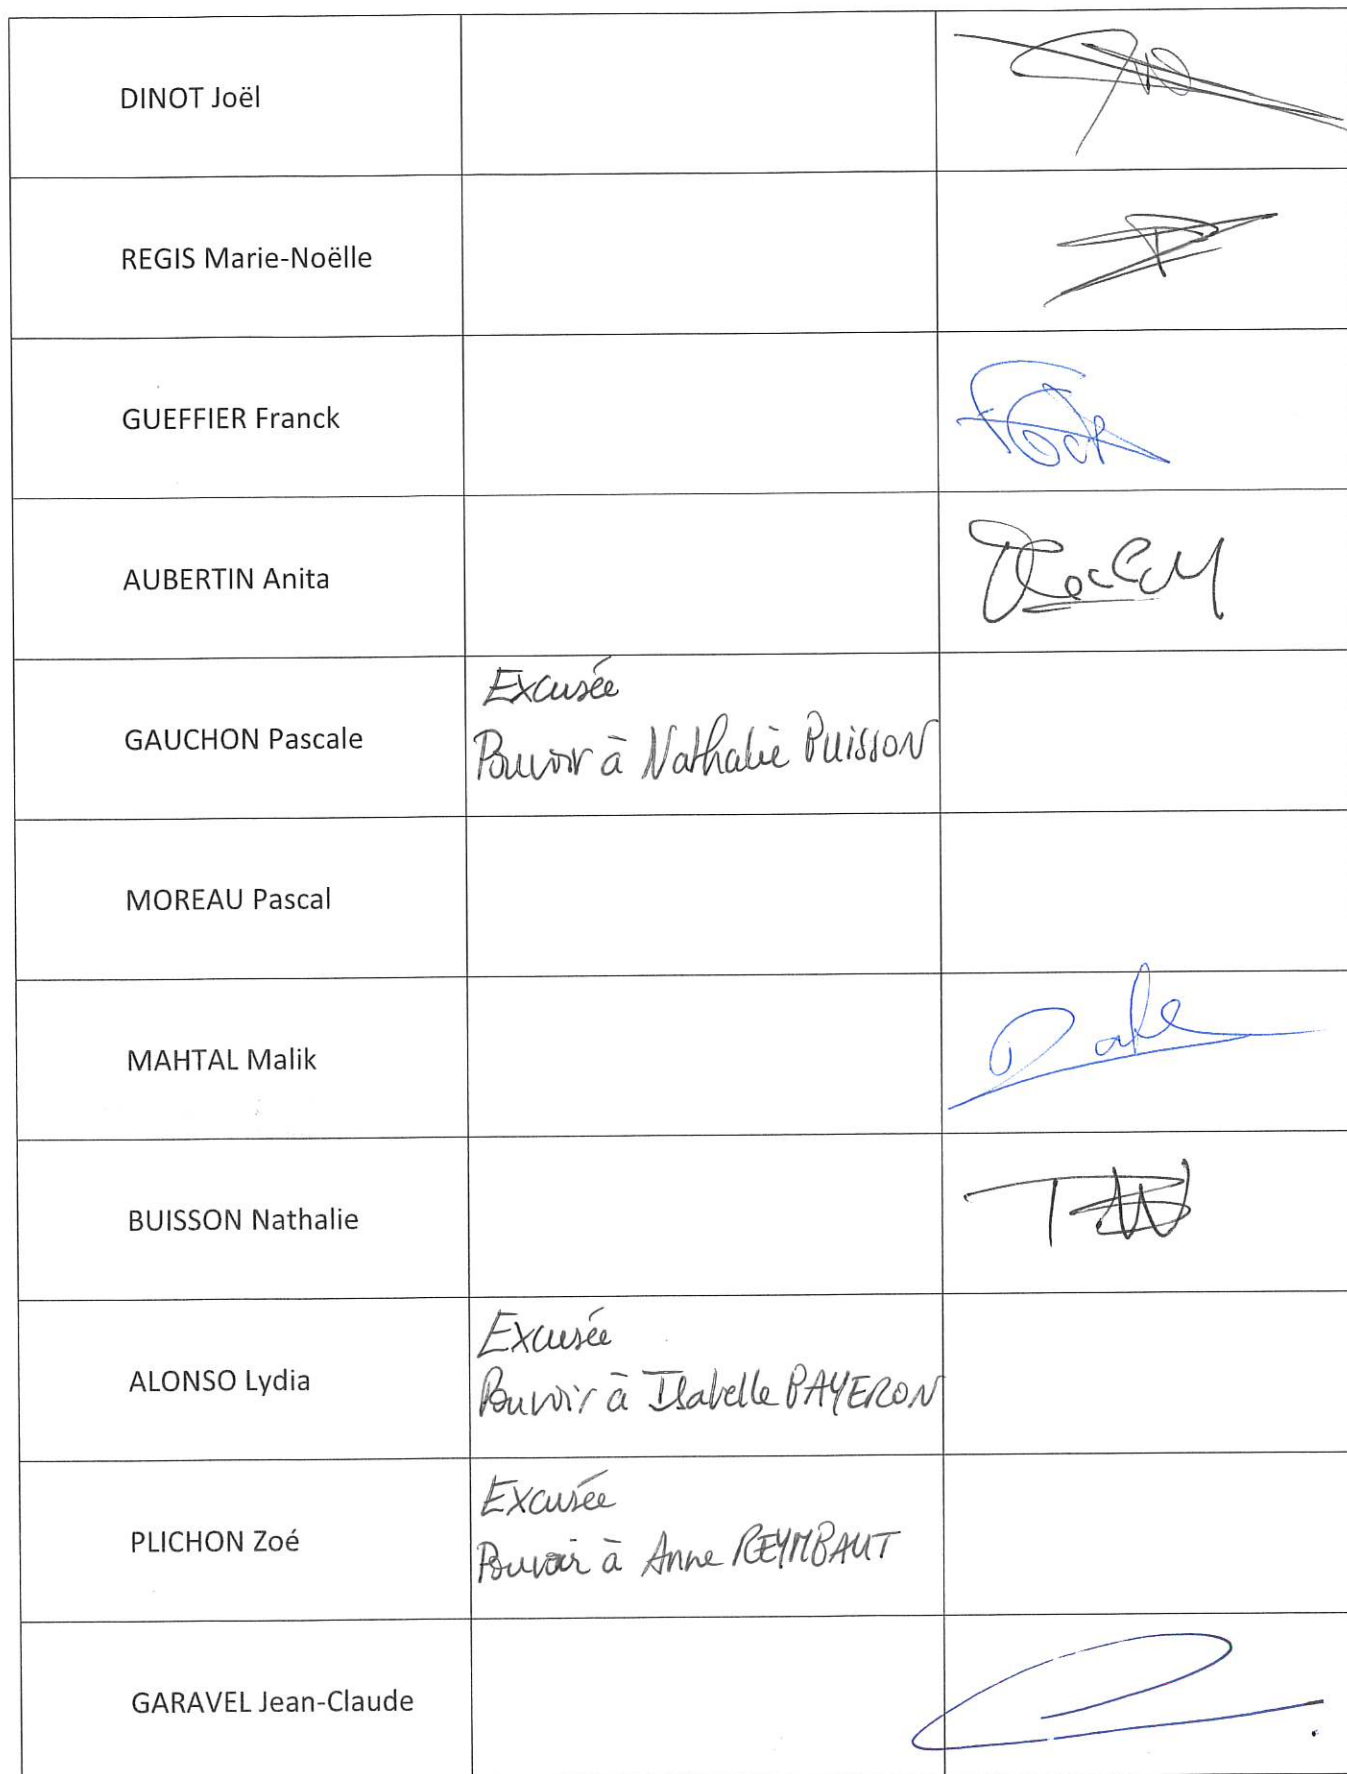 DINOT Joël
REGIS Marie-Noëlle
GUEFFIER Franck
AUBERTIN Anita
Excusée
GAUCHON Pascale
Pouvoir à Nathalie BUISSON
MOREAU Pascal
MAHTAL Malik
BUISSON Nathalie
Excusée
ALONSO Lydia
Pouvoir à Isabelle PAYERON
Excusée
PLICHON Zoé
Pouvoir à Anne REYMBAUT
GARAVEL Jean-Claude